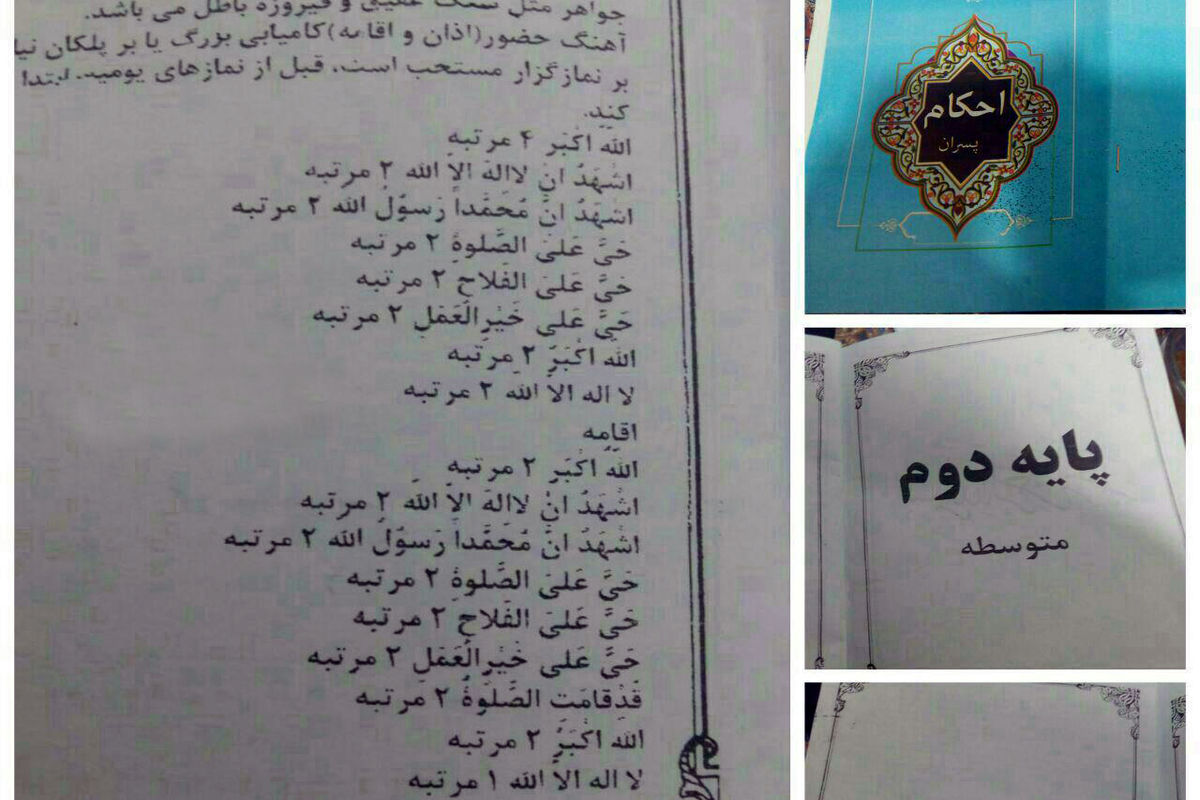 جواهر مثل سنگ عقیق و فیروزه باطل می باشد.
آهنگ حضور(اذان و اقامه)کامیابی بزرگ یا بر پلکان
بر نمازگزار مستحب است، قبل از نمازهای یومیه، ابتدا
کند.
الله اَکْبَر ۴ مرتبه
اشْهَدُ انْ لاالهَ الاَّ الله ۲ مرتبه
اشْهَدُ انَّ مُحَمَّداً رَسوُلُ الله ۲ مرتبه
حَیَّ عَلیَ الصَّلوةِ ۲ مرتبه
حَیَّ عَلیَ الفَلاحِ ۲ مرتبه
حَیَّ عَلی خَیْرِالْعَمَلِ ۲ مرتبه
الله اکْبَرُ ۲ مرتبه
لا اله الاَّ الله ۲ مرتبه
اقامه
الله اکْبَر ۲ مرتبه
اشْهَدُ انْ لاالهَ الاَّ الله ۲ مرتبه
اشْهَدُ انَّ مُحَمَّداً رَسوُلُ الله ۲ مرتبه
حَیَّ عَلیَ الصَّلوةِ ۲ مرتبه
حَیَّ عَلیَ الفَلاحِ ۲ مرتبه
حَیَّ عَلی خَیْرِالْعَمَلِ ۲ مرتبه
قَدْقامَتِ الصَّلوةُ ۲ مرتبه
الله اکْبَرُ ۲ مرتبه
لا اله الاَّ الله ۱ مرتبه
احکام
پسران
پایه دوم
متوسطه